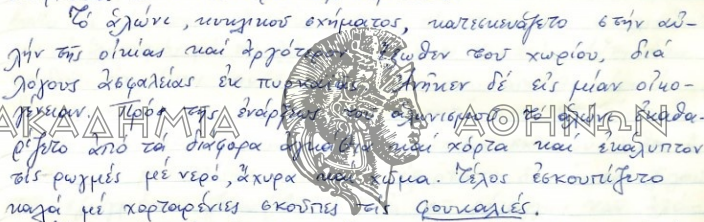 Τό ἁλώνι, κυκλικοῦ σχήματος, κατεσκευάζετο στήν αὐ-
λήν τῆς οἰκίας καί ἀργότερον ἔξωθεν τοῦ χωρίου, διά
λόγους ἀσφαλείας ἐκ πυρκαϊᾶς. Ἀνῆκεν δέ εἰς μίαν οἰκο-
γένειαν. Πρό τῆς ἐνάρξεως τοῦ ἁλωνισμοῦ τό ἁλώνι ἐκαθα-
ΑΚΑΔΗΜΙΑ ΑΘΗΝΩΝ
ρίζετο ἀπό τά διάφορα ἀγκάθια καί χόρτα καί ἐκάλυπτον
τίς ρωγμές μέ νερό, ἄχυρα καί χῶμα. Τέλος ἐσκουπίζετο
καλά μέ χορταρένιες σκοῦπες τίς φουκαλιές.